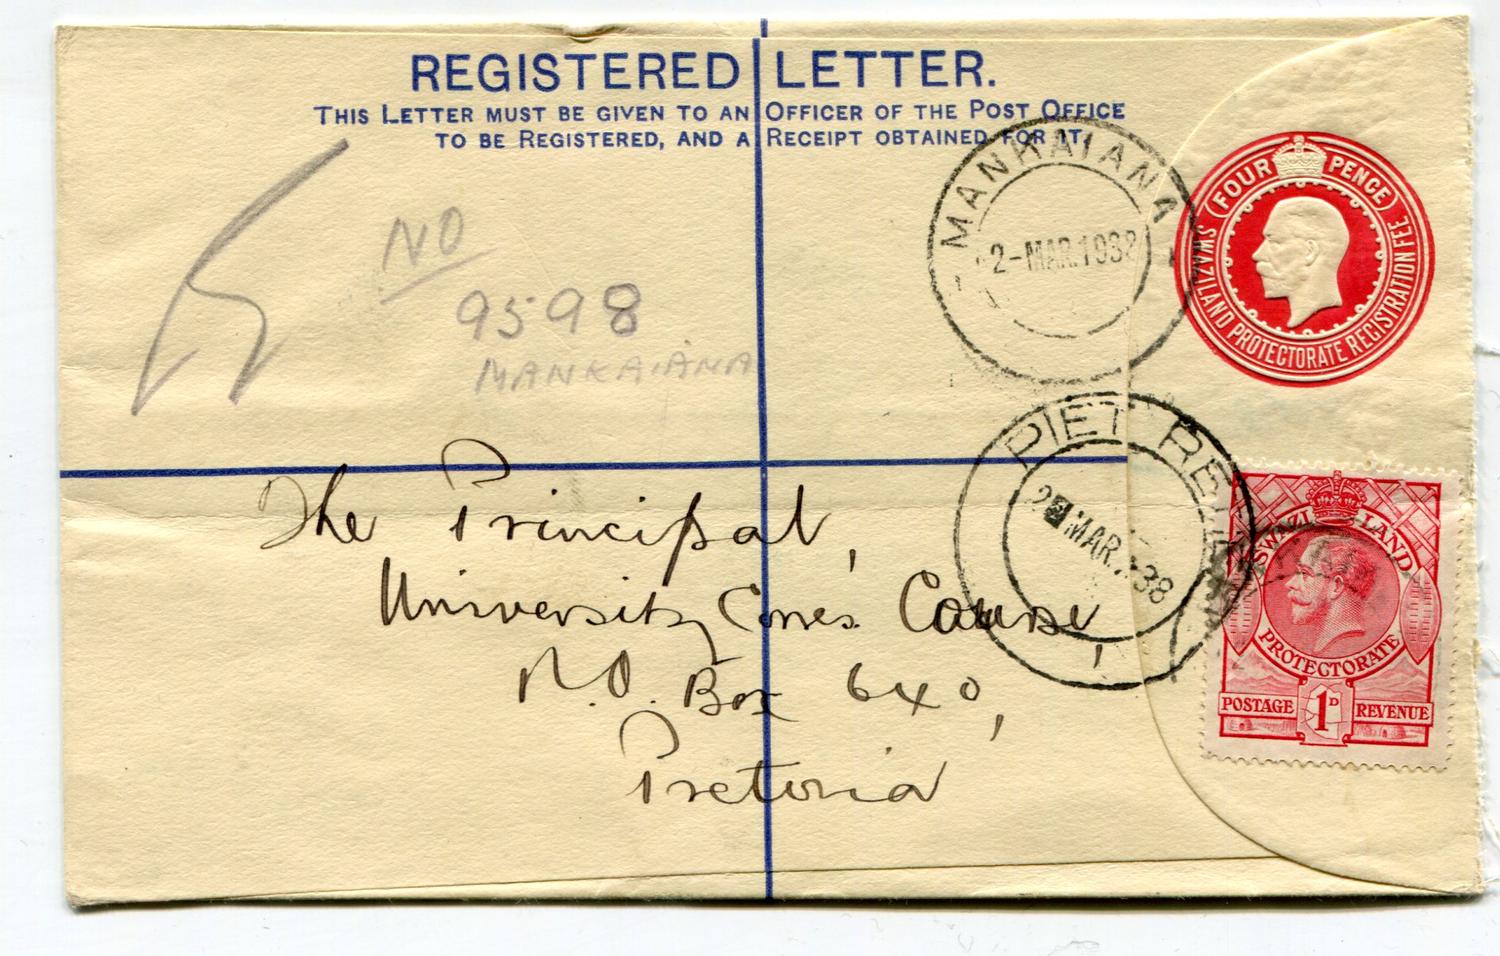 REGISTERED LETTER.
THIS LETTER MUST BE GIVEN TO AN OFFICER OF THE POST OFFICE
TO BE REGISTERED, AND A RECEIPT OBTAINED FOR IT.
(FOUR PENCE)
SWAZILAND PROTECTORATE REGISTRATION FEE
MANKAIANA
2-MAR.1938
NO
9598
MANKAIANA
PIET RETIEF
2 MAR. 38
The Principal,
University Corres. Course,
P.O. Box 640,
Pretoria
SWAZI LAND
PROTECTORATE
POSTAGE 1D REVENUE